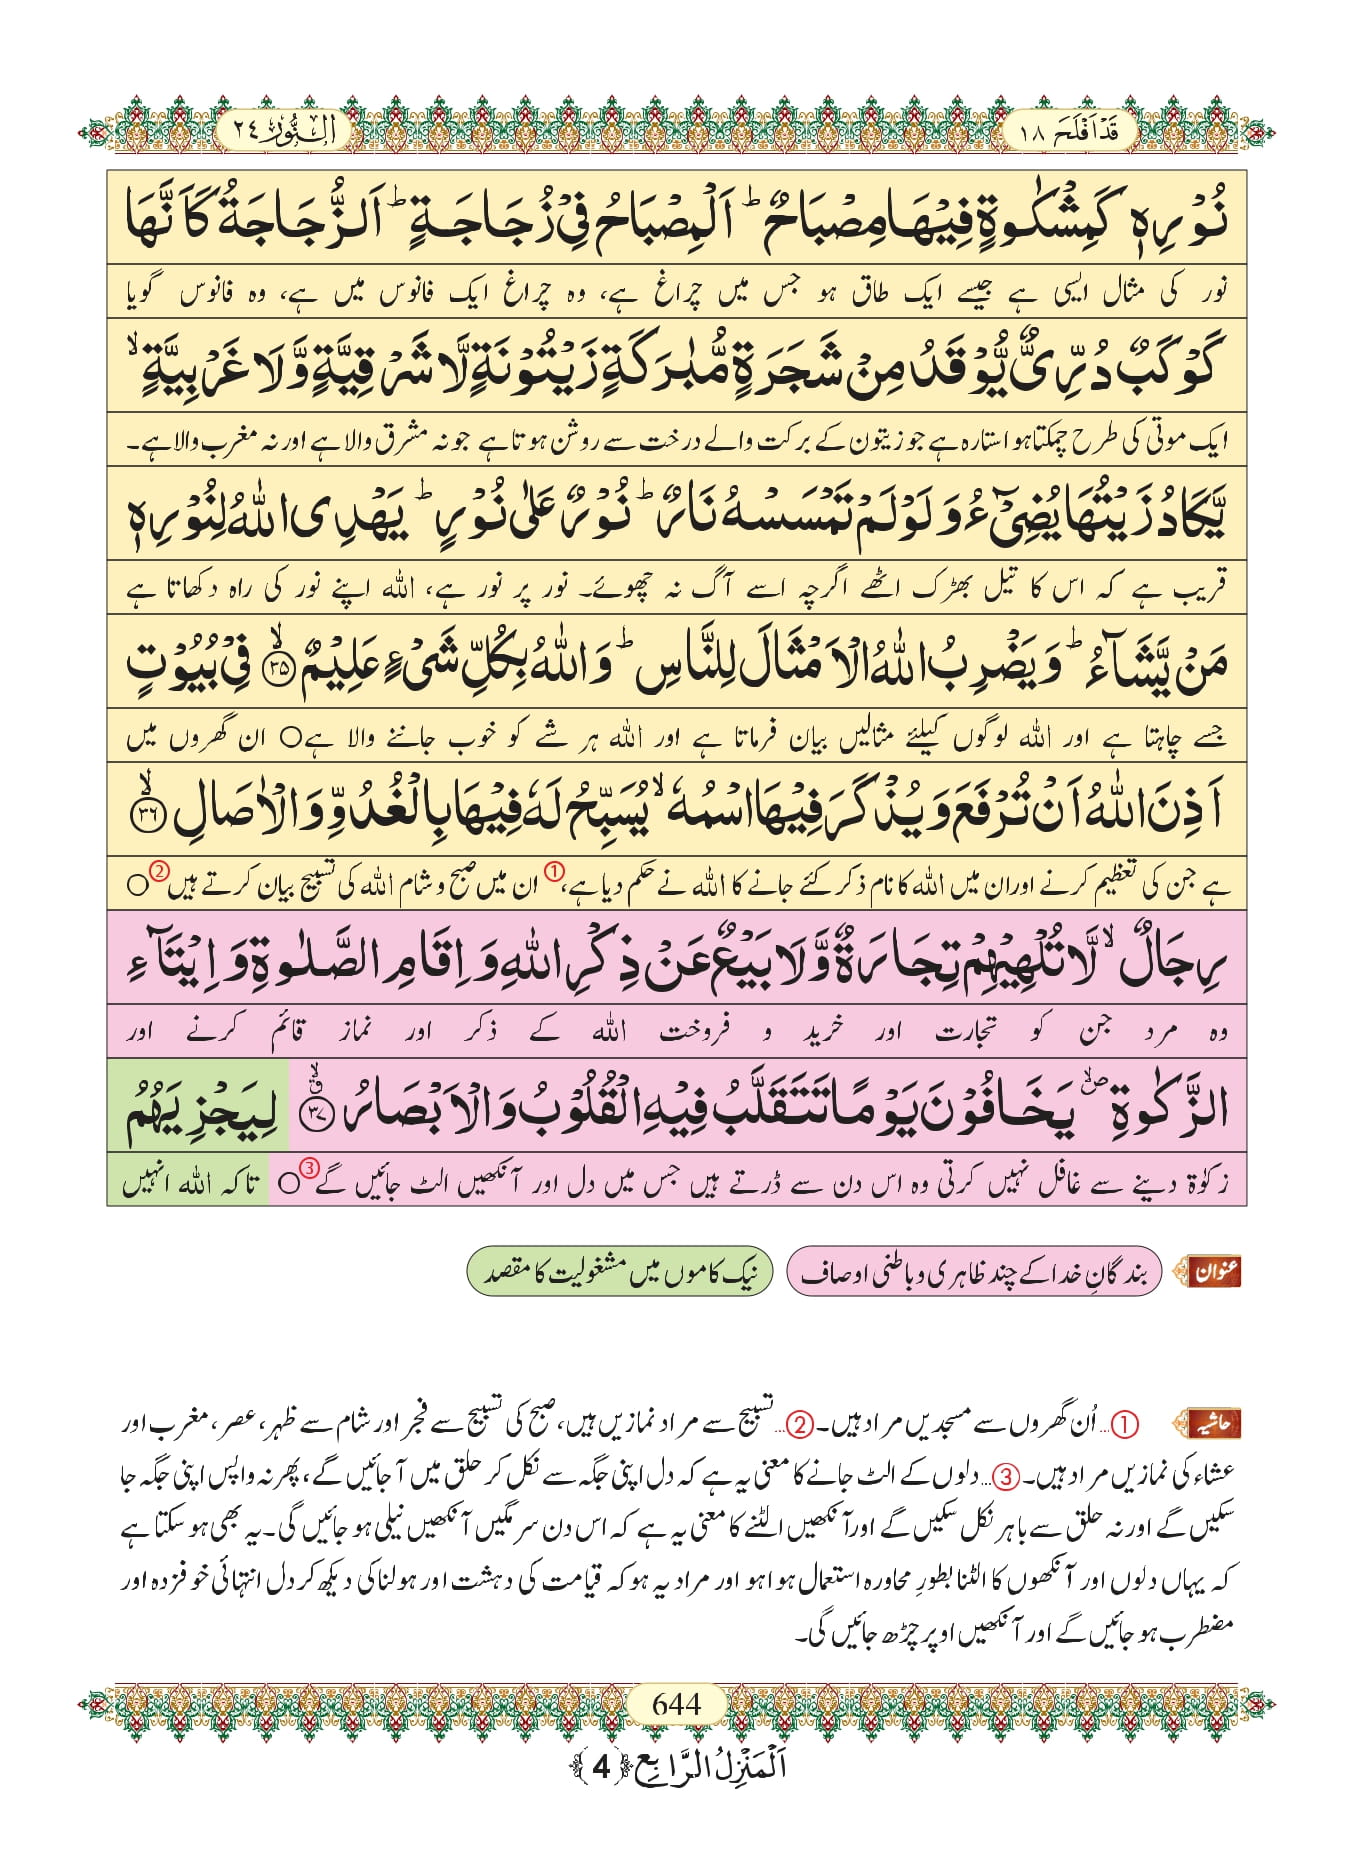 قَدْ اَفْلَحَ ١٨
اَلنُّوْر ٢٤
نُوْرِهٖ كَمِشْكٰوةٍ فِیْهَا مِصْبَاحٌؕ اَلْمِصْبَاحُ فِیْ زُجَاجَةٍؕ اَلزُّجَاجَةُ كَاَنَّهَا
نور کی مثال ایسی ہے جیسے ایک طاق ہو جس میں چراغ ہے، وہ چراغ ایک فانوس میں ہے، وہ فانوس گویا
كَوْكَبٌ دُرِّیٌّ یُّوْقَدُ مِنْ شَجَرَةٍ مُّبٰرَكَةٍ زَیْتُوْنَةٍ لَّا شَرْقِیَّةٍ وَّ لَا غَرْبِیَّةٍۙ
ایک موتی کی طرح چمکتا ہوا ستارہ ہے جو زیتون کے برکت والے درخت سے روشن ہوتا ہے جو نہ مشرق والا ہے اور نہ مغرب والا ہے۔
یَّكَادُ زَیْتُهَا یُضِیْٓءُ وَ لَوْ لَمْ تَمْسَسْهُ نَارٌؕ نُوْرٌ عَلٰى نُوْرٍؕ یَهْدِی اللّٰهُ لِنُوْرِهٖ
قریب ہے کہ اس کا تیل بھڑک اٹھے اگرچہ اسے آگ نہ چھوئے۔ نور پر نور ہے، اللہ اپنے نور کی راہ دکھاتا ہے
مَنْ یَّشَآءُؕ وَ یَضْرِبُ اللّٰهُ الْاَمْثَالَ لِلنَّاسِؕ وَ اللّٰهُ بِكُلِّ شَیْءٍ عَلِیْمٌۙ﴿۳۵﴾ فِیْ بُیُوْتٍ
جسے چاہتا ہے اور اللہ لوگوں کیلئے مثالیں بیان فرماتا ہے اور اللہ ہر شے کو خوب جاننے والا ہے○ ان گھروں میں
اَذِنَ اللّٰهُ اَنْ تُرْفَعَ وَ یُذْكَرَ فِیْهَا اسْمُهٗۙ یُسَبِّحُ لَهٗ فِیْهَا بِالْغُدُوِّ وَ الْاٰصَالِۙ﴿۳۶﴾
ہے جن کی تعظیم کرنے اور ان میں اللہ کا نام ذکر کئے جانے کا اللہ نے حکم دیا ہے،① ان میں صبح و شام اللہ کی تسبیح بیان کرتے ہیں②○
رِجَالٌۙ لَّا تُلْهِیْهِمْ تِجَارَةٌ وَّ لَا بَیْعٌ عَنْ ذِكْرِ اللّٰهِ وَ اِقَامِ الصَّلٰوةِ وَ اِیْتَآءِ
وہ مرد جن کو تجارت اور خرید و فروخت اللہ کے ذکر اور نماز قائم کرنے اور
الزَّكٰوةِ۪ۙ یَخَافُوْنَ یَوْمًا تَتَقَلَّبُ فِیْهِ الْقُلُوْبُ وَ الْاَبْصَارُۗۙ﴿۳۷﴾ لِیَجْزِیَهُمُ
زکوٰۃ دینے سے غافل نہیں کرتی وہ اس دن سے ڈرتے ہیں جس میں دل اور آنکھیں الٹ جائیں گے③○ تاکہ اللہ انہیں
عنوان بندگانِ خدا کے چند ظاہری و باطنی اوصاف نیک کاموں میں مشغولیت کا مقصد
حاشیہ ①... اُن گھروں سے مسجدیں مراد ہیں۔②... تسبیح سے مراد نمازیں ہیں، صبح کی تسبیح سے فجر اور شام سے ظہر، عصر، مغرب اور
عشاء کی نمازیں مراد ہیں۔③... دلوں کے الٹ جانے کا معنی یہ ہے کہ دل اپنی جگہ سے نکل کر حلق میں آجائیں گے، پھر نہ واپس اپنی جگہ جا
سکیں گے اور نہ حلق سے باہر نکل سکیں گے اور آنکھیں الٹنے کا معنی یہ ہے کہ اس دن سرمگیں آنکھیں نیلی ہو جائیں گی۔ یہ بھی ہو سکتا ہے
کہ یہاں دلوں اور آنکھوں کا الٹنا بطورِ محاورہ استعمال ہوا ہو اور مراد یہ ہو کہ قیامت کی دہشت اور ہولناکی دیکھ کر دل انتہائی خوفزدہ اور
مضطرب ہو جائیں گے اور آنکھیں اوپر چڑھ جائیں گی۔
644
اَلْمَنْزِلُ الرَّابِع ﴿4﴾